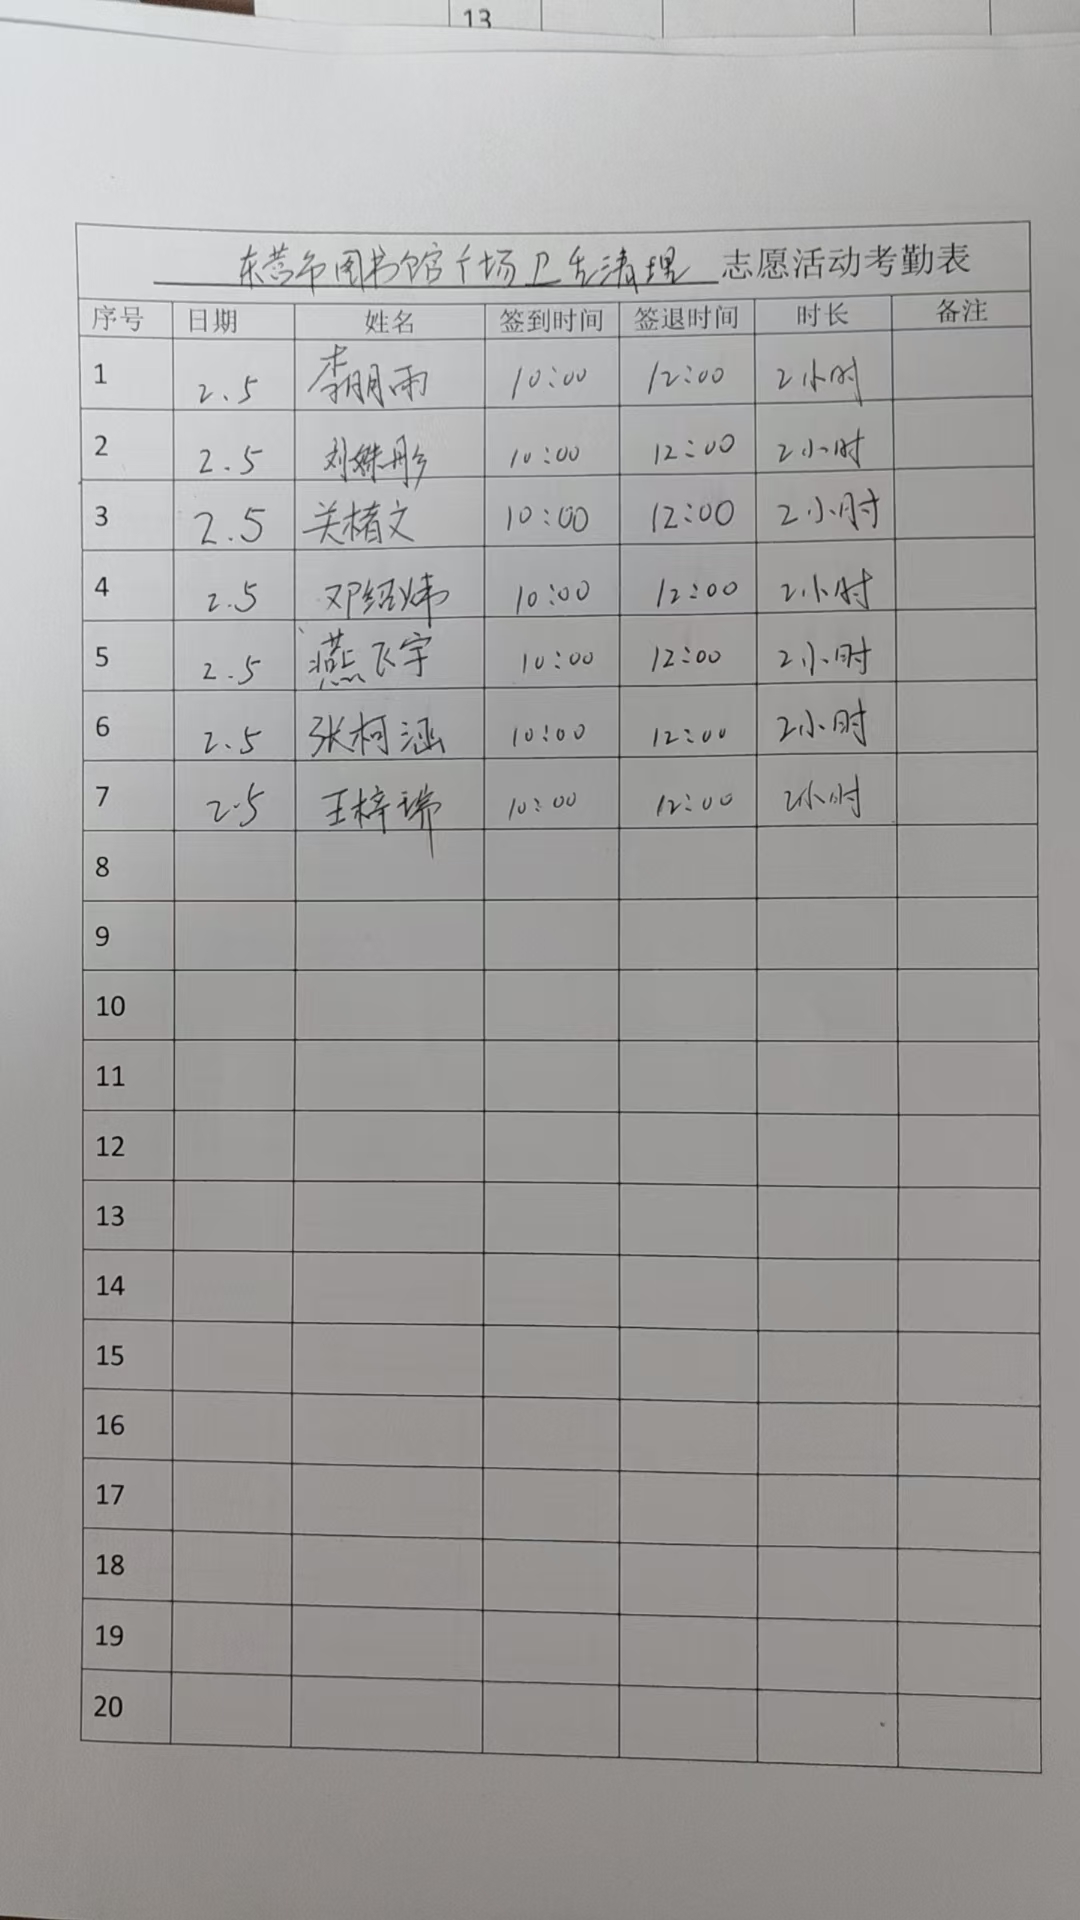 13
东营市图书馆广场卫生清理 志愿活动考勤表
序号 日期 姓名 签到时间 签退时间 时长 备注
1 2.5 李明雨 10:00 12:00 2小时
2 2.5 刘姝彤 10:00 12:00 2小时
3 2.5 关楮文 10:00 12:00 2小时
4 2.5 邓绍炜 10:00 12:00 2小时
5 2.5 燕飞宇 10:00 12:00 2小时
6 2.5 张柯涵 10:00 12:00 2小时
7 2.5 王梓瑞 10:00 12:00 2小时
8
9
10
11
12
13
14
15
16
17
18
19
20